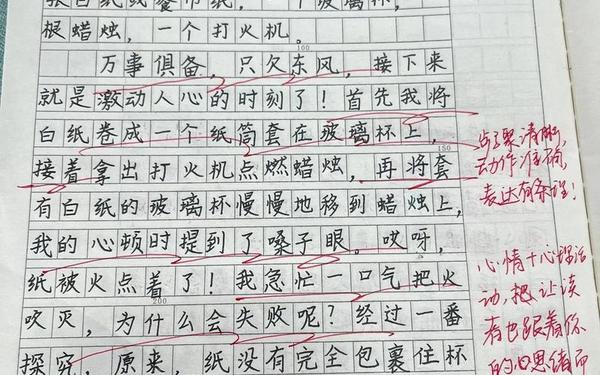 张白纸或餐巾纸，一个玻璃杯，
根蜡烛，一个打火机。
100
万事俱备，只欠东风，接下来
就是激动人心的时刻了！首先我将
白纸卷成一个纸筒套在玻璃杯上，
150
接着拿出打火机点燃蜡烛，再将套
有白纸的玻璃杯慢慢地移到蜡烛上，
我的心顿时提到了嗓子眼。哎呀，
纸被火点着了！我急忙一口气把火
200
吹灭，为什么会失败呢？经过一番
探究，原来，纸没有完全包裹住杯
步骤清晰，
动作准确，
表达有条理！
心情+心理活
动，把让读
者也跟着你
的心思绪而